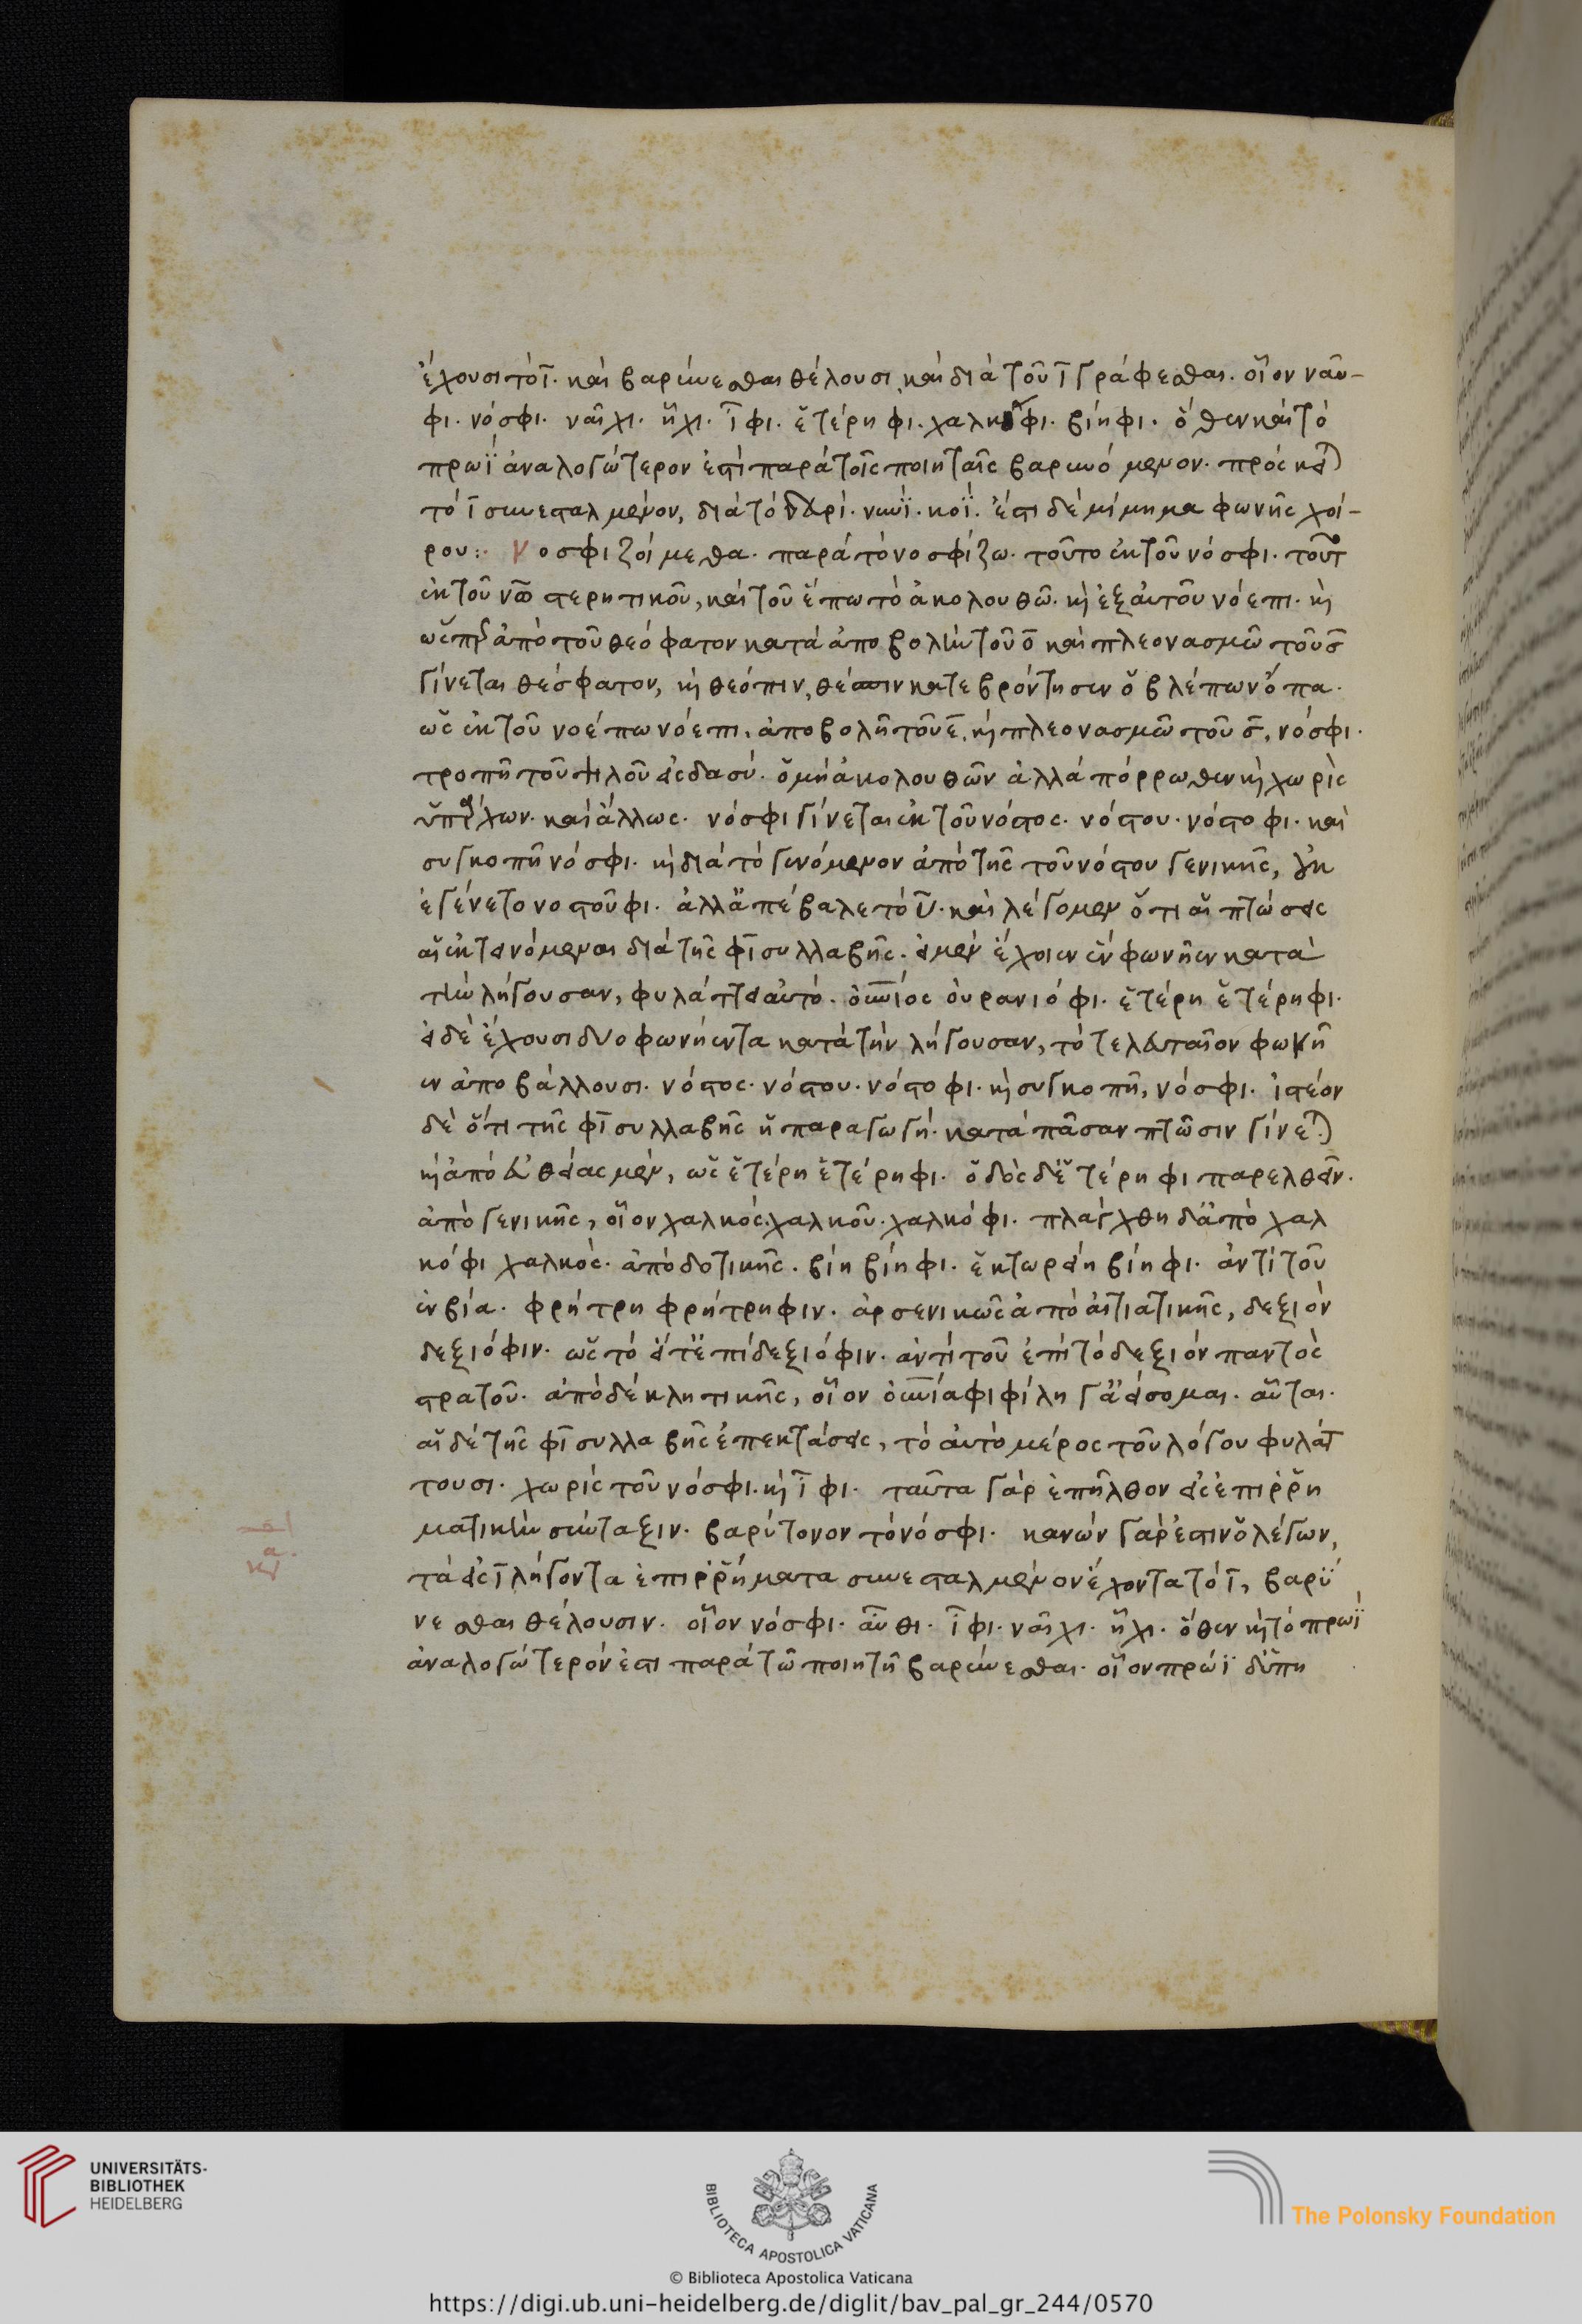 ἔχουσι τὸ ῑ· καὶ βαρύνεσθαι θέλουσι καὶ διὰ τοῦ ῑ γράφεσθαι. οἷον ναῦ-
φι· νόσφι· ναῖχι· ἧχι· ἶφι· ἑτέρηφι· χαλκόφι· βίηφι· ὅθεν καὶ τὸ
πρωϊ ἀναλογώτερον ἐστὶ παρὰ τοῖς ποιηταῖς βαρυνόμενον· πρόσκειται
τὸ ῑ συνεσταλμένον, διὰ τὸ νωϊ· κοΐ· ἔστι δὲ μίμημα φωνῆς χοί-
ρου: Νοσφιζοίμεθα· παρὰ τὸ νοσφίζω· τοῦτο ἐκ τοῦ νόσφι· τοῦτο
ἐκ τοῦ νο στερητικοῦ, καὶ τοῦ ἕπω τὸ ἀκολουθῶ· καὶ ἐξ αὐτοῦ νόεπι· καὶ
ὥσπερ ἀπὸ τοῦ θεόφατον κατὰ ἀποβολὴν τοῦ ο καὶ πλεονασμῶ τοῦ σ
γίνεται θέσφατον, καὶ θεόπιν, θέσπιν κατεβρόντησεν ὁ βλέπων ὄπα·
ὡς ἐκ τοῦ νοέπω νόεπι, ἀποβολῆ τοῦ ε, καὶ πλεονασμῶ τοῦ σ, νόσφι·
τροπῆ τοῦ ψιλοῦ εἰς δασύ· ὁ μὴ ἀκολουθῶν ἀλλὰ πόρρωθεν καὶ χωρὶς
ὑπάρχων· καὶ ἄλλως· νόσφι γίνεται ἐκ τοῦ νόστος· νόστου· νόστοφι· καὶ
συγκοπῆ νόσφι· καὶ διὰ τὸ γενόμενον ἀπὸ τῆς τοῦ νόστου γενικῆς, οὐκ
ἐγένετο νοστοῦφι· ἀλλ' ἀπέβαλε τὸ υ· καὶ λέγομεν ὅτι αἱ πτώσεις
αἱ ἐκτεινόμεναι διὰ τῆς φι συλλαβῆς· εἰ μὲν ἔχοιεν ἓν φωνῆεν κατὰ
τὴν λήγουσαν, φυλάττει αὐτό· ὁ οὐνίος οὐρανιόφι· ἑτέρη ἑτέρηφι·
εἰ δὲ ἔχουσι δύο φωνήεντα κατὰ τὴν λήγουσαν, τὸ τελευταῖον φωνῆ
εν ἀποβάλλουσι· νόστος· νόστου· νόστοφι· καὶ συγκοπῆ, νόσφι· ἰστέον
δὲ ὅτι τῆς φι συλλαβῆς ἡ παραγωγή· κατὰ πᾶσαν πτῶσιν γίνεται
καὶ ἀπὸ εὐθείας μὲν, ὡς ἑτέρη ἑτέρηφι· ὁδὸς δ' ἑτέρηφι παρελθεῖν·
ἀπὸ γενικῆς, οἷον χαλκός· χαλκοῦ· χαλκόφι· πλάγχθη δ' ἀπὸ χαλ
κόφι χαλκός· ἀπὸ δοτικῆς· βίη βίηφι· ἕκτωρ ἐῆ βίηφι· ἀντὶ τοῦ
ἐν βία· φρήτρη φρήτρηφιν· ἀρσενικῶς ἀπὸ αἰτιατικῆς, δεξιὸν
δεξιόφιν· ὡς τὸ εἴτ' ἐπὶ δεξιόφιν· ἀντὶ τοῦ ἐπὶ τὸ δεξιὸν παντὸς
στρατοῦ· ἀπὸ δὲ κλητικῆς, οἷον οὐνίαφι φίλη γ' ἀείσομαι· αὗται·
αἱ δὲ τῆς φι συλλαβῆς ἐπεκτάσεις, τὸ αὐτὸ μέρος τοῦ λόγου φυλάτ
τουσι· χωρὶς τοῦ νόσφι· καὶ ἶφι· ταῦτα γὰρ ἐπῆλθον εἰς ἐπιρρη
ματικὴν σύνταξιν· βαρύτονον τὸ νόσφι· κανὼν γάρ ἐστιν ὁ λέγων,
τὰ εἰς ῑ λήγοντα ἐπιρρήματα συνεσταλμένον ἔχοντα τὸ ῑ, βαρύ
νεσθαι θέλουσιν· οἷον νόσφι· αὖθι· ἶφι· ναῖχι· ἧχι· ὅθεν καὶ τὸ πρωϊ
ἀναλογώτερόν ἐστι παρὰ τῶ ποιητῆ βαρύνεσθαι· οἷον πρώϊ δ' ὑπη
UNIVERSITÄTS-
BIBLIOTHEK
HEIDELBERG
BIBLIOTECA APOSTOLICA VATICANA
The Polonsky Foundation
© Biblioteca Apostolica Vaticana
https://digi.ub.uni-heidelberg.de/diglit/bav_pal_gr_244/0570